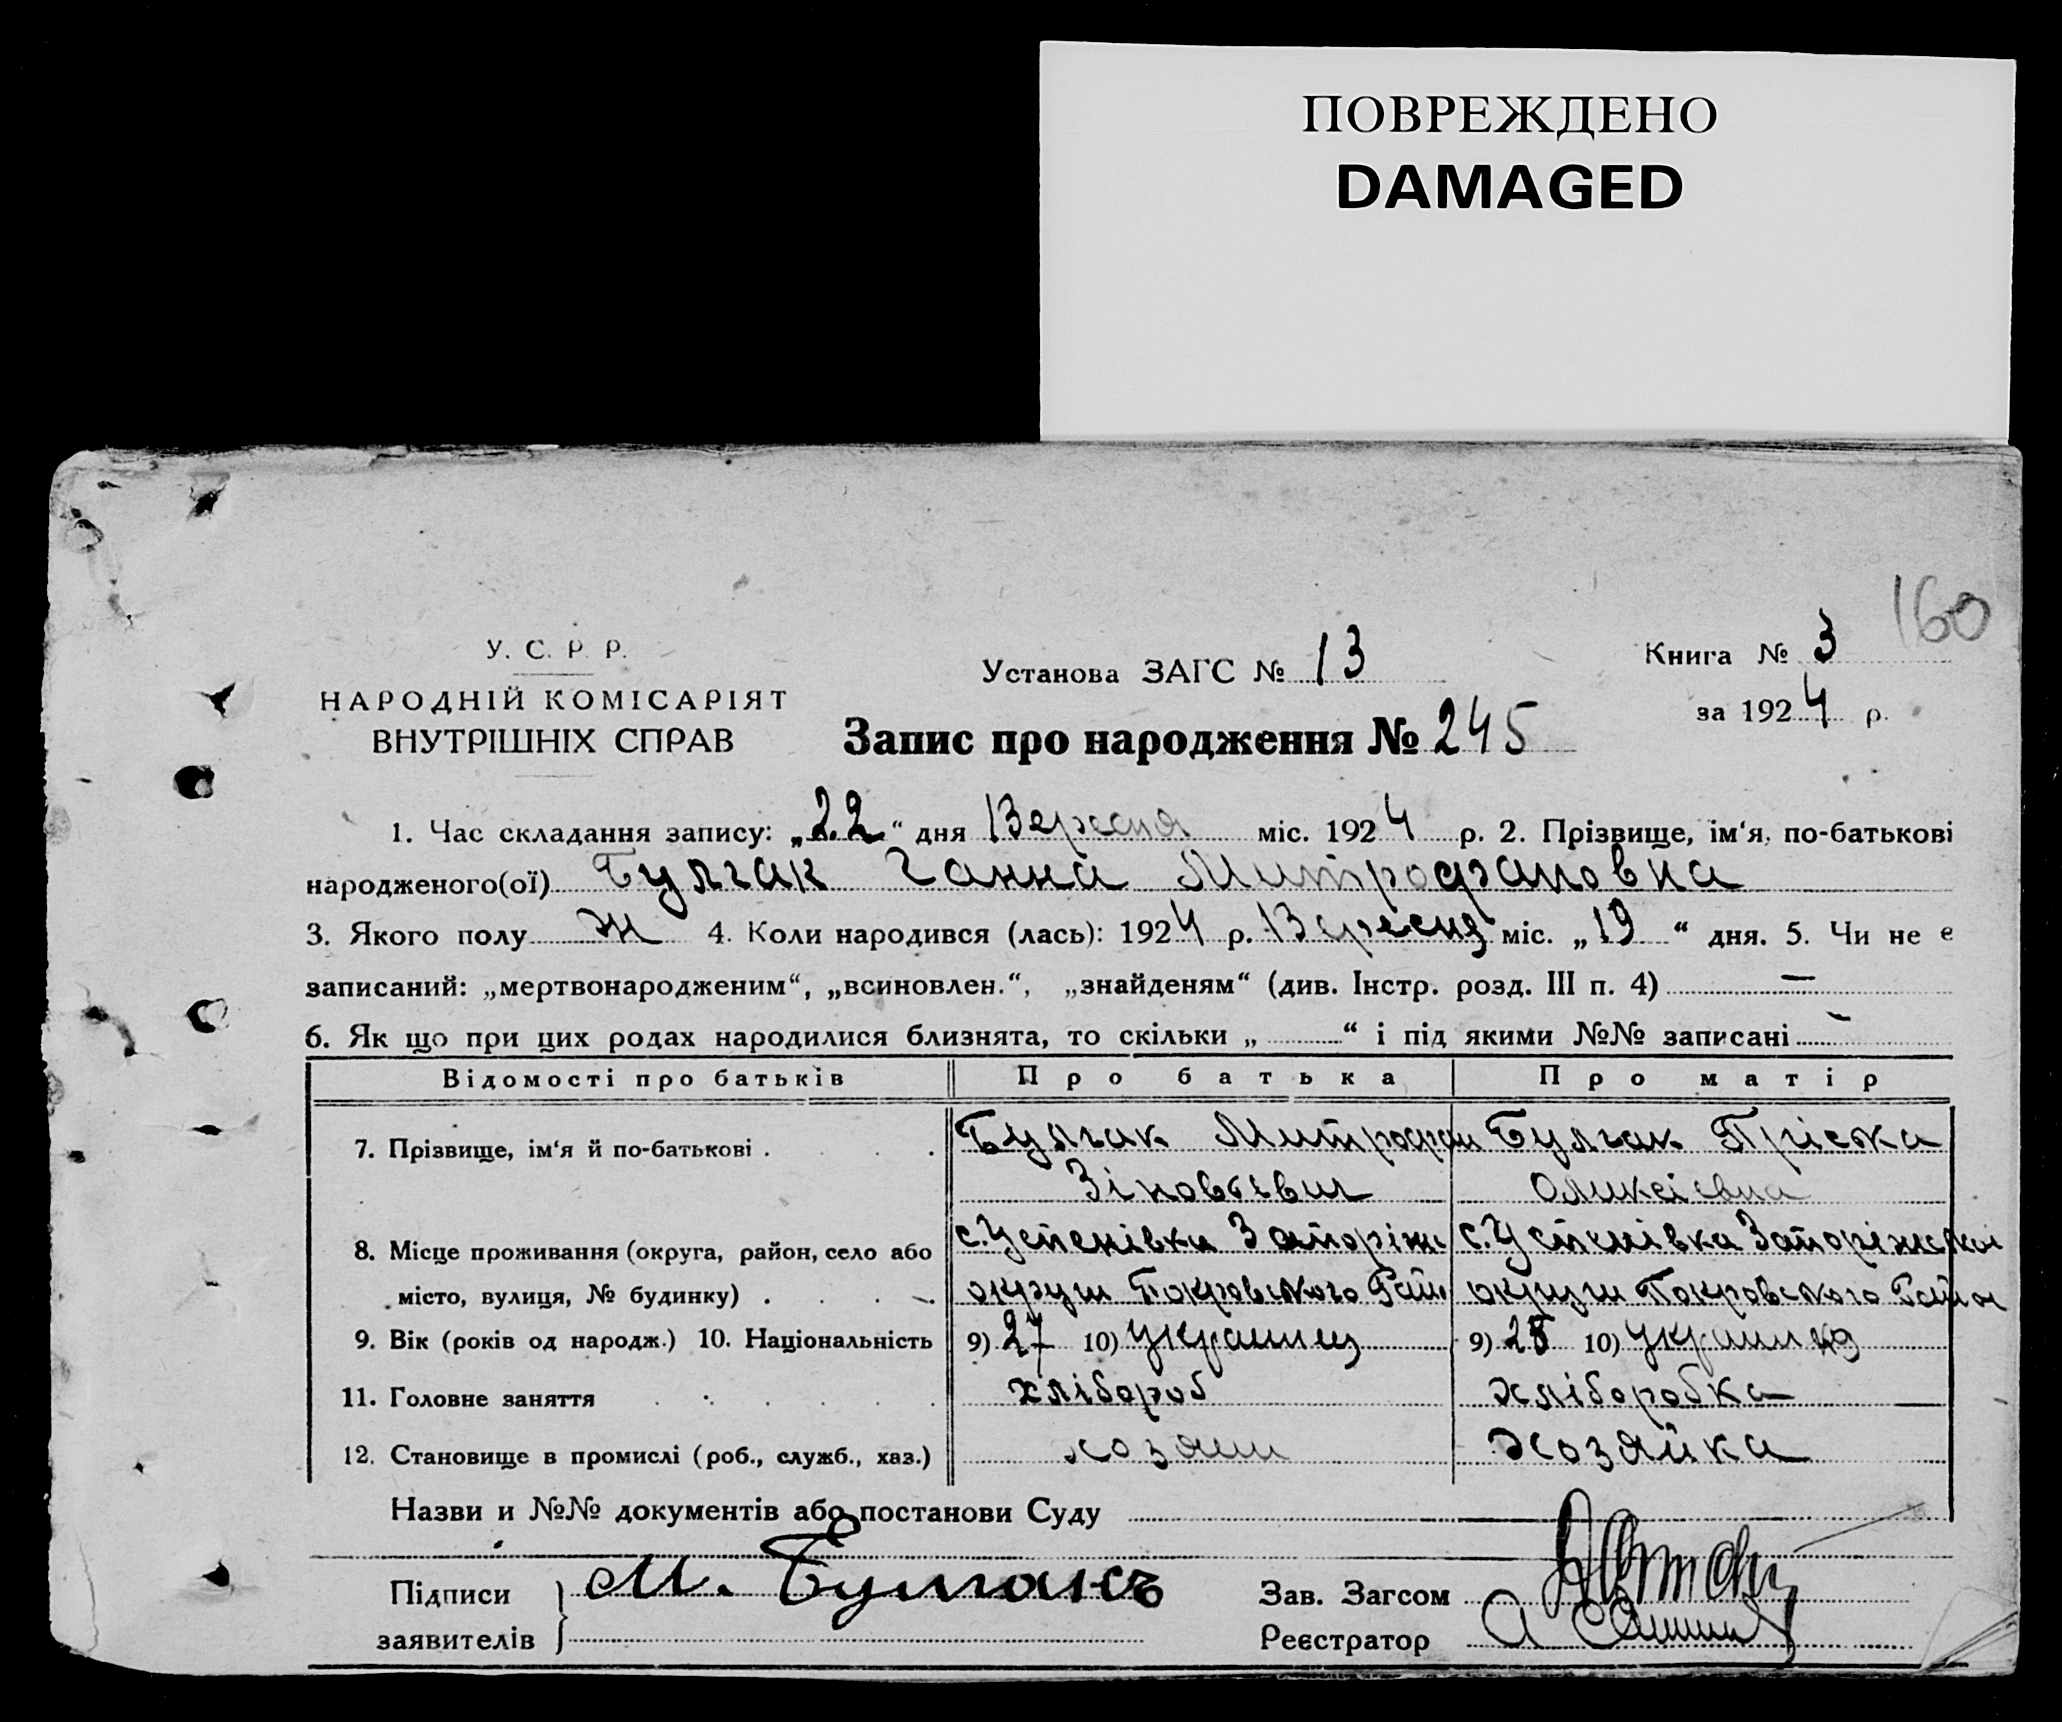 ПОВРЕЖДЕНО
DAMAGED
160
У. С. Р. Р.
НАРОДНІЙ КОМІСАРІЯТ
ВНУТРІШНІХ СПРАВ
Установа ЗАГС № 13
Книга № 3
за 1924 р.
Запис про народження № 245
1. Час складання запису: „22“ дня Вересня міс. 1924 р. 2. Прізвище, ім‘я, по-батькові
народженого(ої) Булгак Ганна Митрофановна
3. Якого полу ж 4. Коли народився (лась): 1924 р. Вересня міс. „19“ дня. 5. Чи не є
записаний: „мертвонародженим“, „всиновлен.“, „знайденям“ (див. Інстр. розд. III п. 4) —
6. Як що при цих родах народилися близнята, то скільки „ “ і під якими №№ записані —
Відомості про батьків Про батька Про матір
7. Прізвище, ім‘я й по-батькові . Булгак Митрофан Булгак Пріська
Зіновьевич Оликсіевна
8. Місце проживання (округа, район, село або с. Успенівка Запоріж с. Успенівка Запоріжської
місто, вулиця, № будинку) . округи Покровського Рай округи Покровського Району
9. Вік (років од народж.) 10. Національність 9) 27 10) Украинец 9) 25 10) Украинка
11. Головне заняття хлібороб хліборобка
12. Становище в промислі (роб., служб., хаз.) хозяин хозяйка
Назви и №№ документів або постанови Суду
Підписи М. Булгакъ Зав. Загсом
заявителів Реєстратор